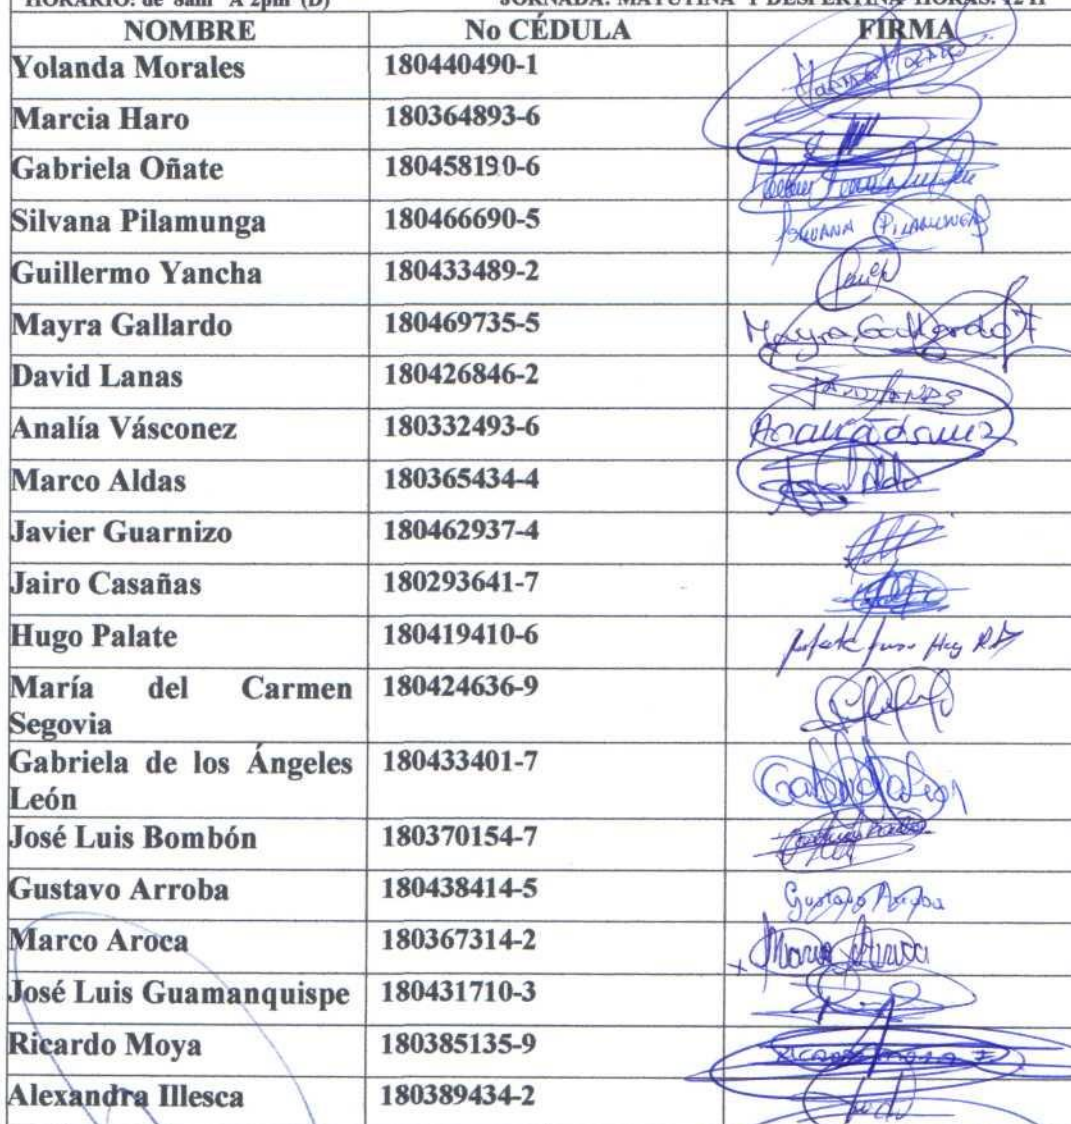 HORARIO: de 8am A 2pm (D) JORNADA: MATUTINA Y DESPERTINA HORAS: 12 H
NOMBRE No CÉDULA FIRMA
Yolanda Morales 180440490-1
Marcia Haro 180364893-6
Gabriela Oñate 180458190-6
Silvana Pilamunga 180466690-5 SILVANA PILAMUNGA
Guillermo Yancha 180433489-2
Mayra Gallardo 180469735-5 Mayra Gallardo F
David Lanas 180426846-2
Analía Vásconez 180332493-6
Marco Aldas 180365434-4
Javier Guarnizo 180462937-4
Jairo Casañas 180293641-7
Hugo Palate 180419410-6
María del Carmen 180424636-9
Segovia
Gabriela de los Ángeles 180433401-7
León
José Luis Bombón 180370154-7
Gustavo Arroba 180438414-5 Gustavo Arroba
Marco Aroca 180367314-2
José Luis Guamanquispe 180431710-3
Ricardo Moya 180385135-9
Alexandra Illesca 180389434-2